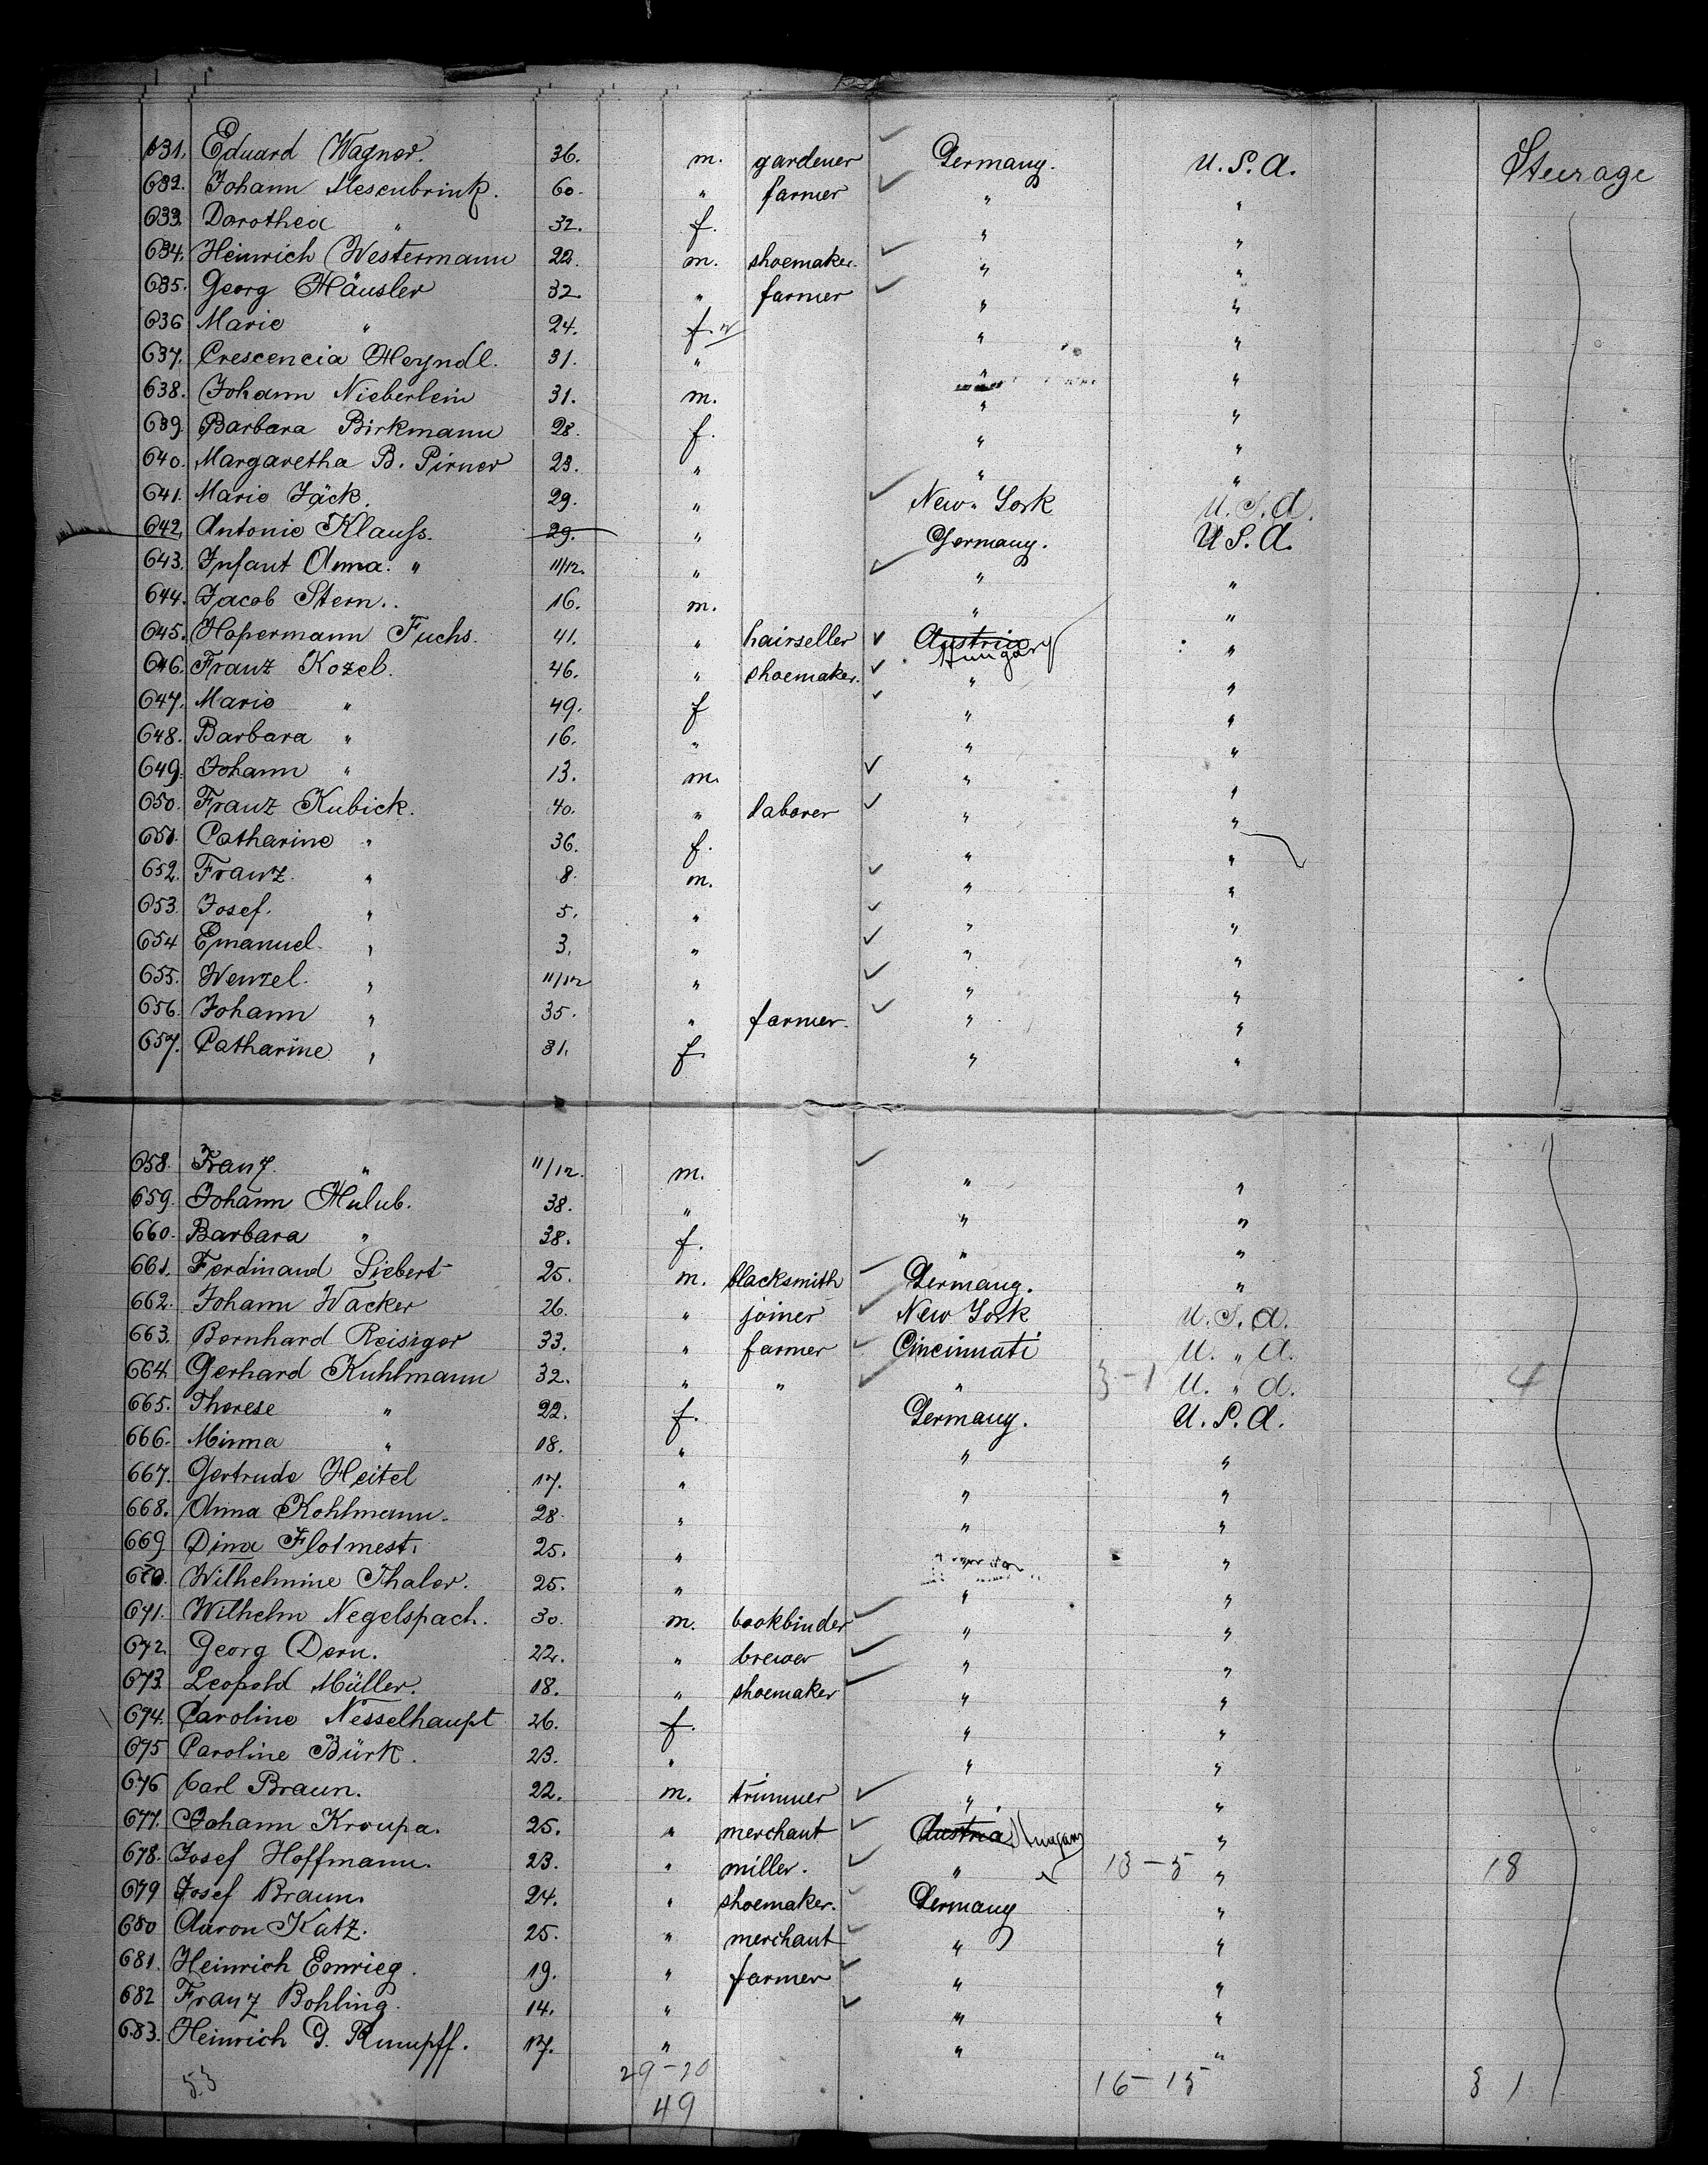 631. Eduard Wagner. 36. m. gardener Germany. U.S.A. Steerage
632. Johann Mesenbrink. 60. " farmer " "
633. Dorothea " 32. f. " "
634. Heinrich Westermann 22. m. shoemaker. " "
635. Georg Häusler 32. " farmer " "
636 Marie " 24. f. " "
637. Crescencia Heyndl. 31. " " "
638. Johann Nieberlein 31. m. " "
639. Barbara Birkmann 28. f. " "
640. Margaretha B. Pirner 23. " " "
641. Marie Jäck. 29. " New-York U.S.A.
642. Antonie Klauss. 29. " Germany. U.S.A.
643. Infant Anna. " 11/12. " " "
644. Jacob Stern. 16. m. " "
645. Hopermann Fuchs. 41. " hairseller Austria Hungary "
646. Franz Kozel. 46. " shoemaker. " "
647. Marie " 49. f " "
648. Barbara " 16. " " "
649. Johann " 13. m. " "
650. Franz Kubick. 40. " laborer " "
651. Catharine " 36. f. " "
652. Franz. " 8. m. " "
653. Josef. " 5. " " "
654 Emanuel. " 3. " " "
655. Wenzel. " 11/12 " " "
656. Johann " 35. " farmer. " "
657. Catharine " 31. f. " "
658. Franz. " 11/12. m. " "
659. Johann Hulub. 38. " " "
660. Barbara " 38. f. " "
661. Ferdinand Siebert 25. m. blacksmith Germany. "
662. Johann Wacker 26. " joiner New York U.S.A.
663. Bernhard Reisiger 33. " farmer Cincinnati U. " A.
664. Gerhard Kuhlmann 32. " " " 3-1 U. " A. 4
665. Therese " 22. f. Germany. U.S.A.
666. Minna " 18. " " "
667. Gertrude Heitel 17. " " "
668. Anna Kohlmann. 28. " " "
669. Dina Flotmest. 25. " " "
670. Wilhelmine Thaler. 25. " " "
671. Wilhelm Negelspach. 30. m. bookbinder " "
672 Georg Dern. 22. " brewer " "
673. Leopold Müller. 18. " shoemaker " "
674. Caroline Nesselhaupt 26. f. " "
675 Caroline Bürk. 23. " " "
676 Carl Braun. 22. m. trimmer " "
677. Johann Kroupa. 25. " merchant Austria Hungary "
678. Josef Hoffmann. 23. " miller. " 13-5 " 18
679 Josef Braun. 24. " shoemaker. Germany "
680 Aaron Katz. 25. " merchant " "
681. Heinrich Eonrieg. 19. " farmer " "
682 Franz Bohling. 14. " " "
683. Heinrich G. Rumpff. 17. " " "
53 29-20 16-15 31
49